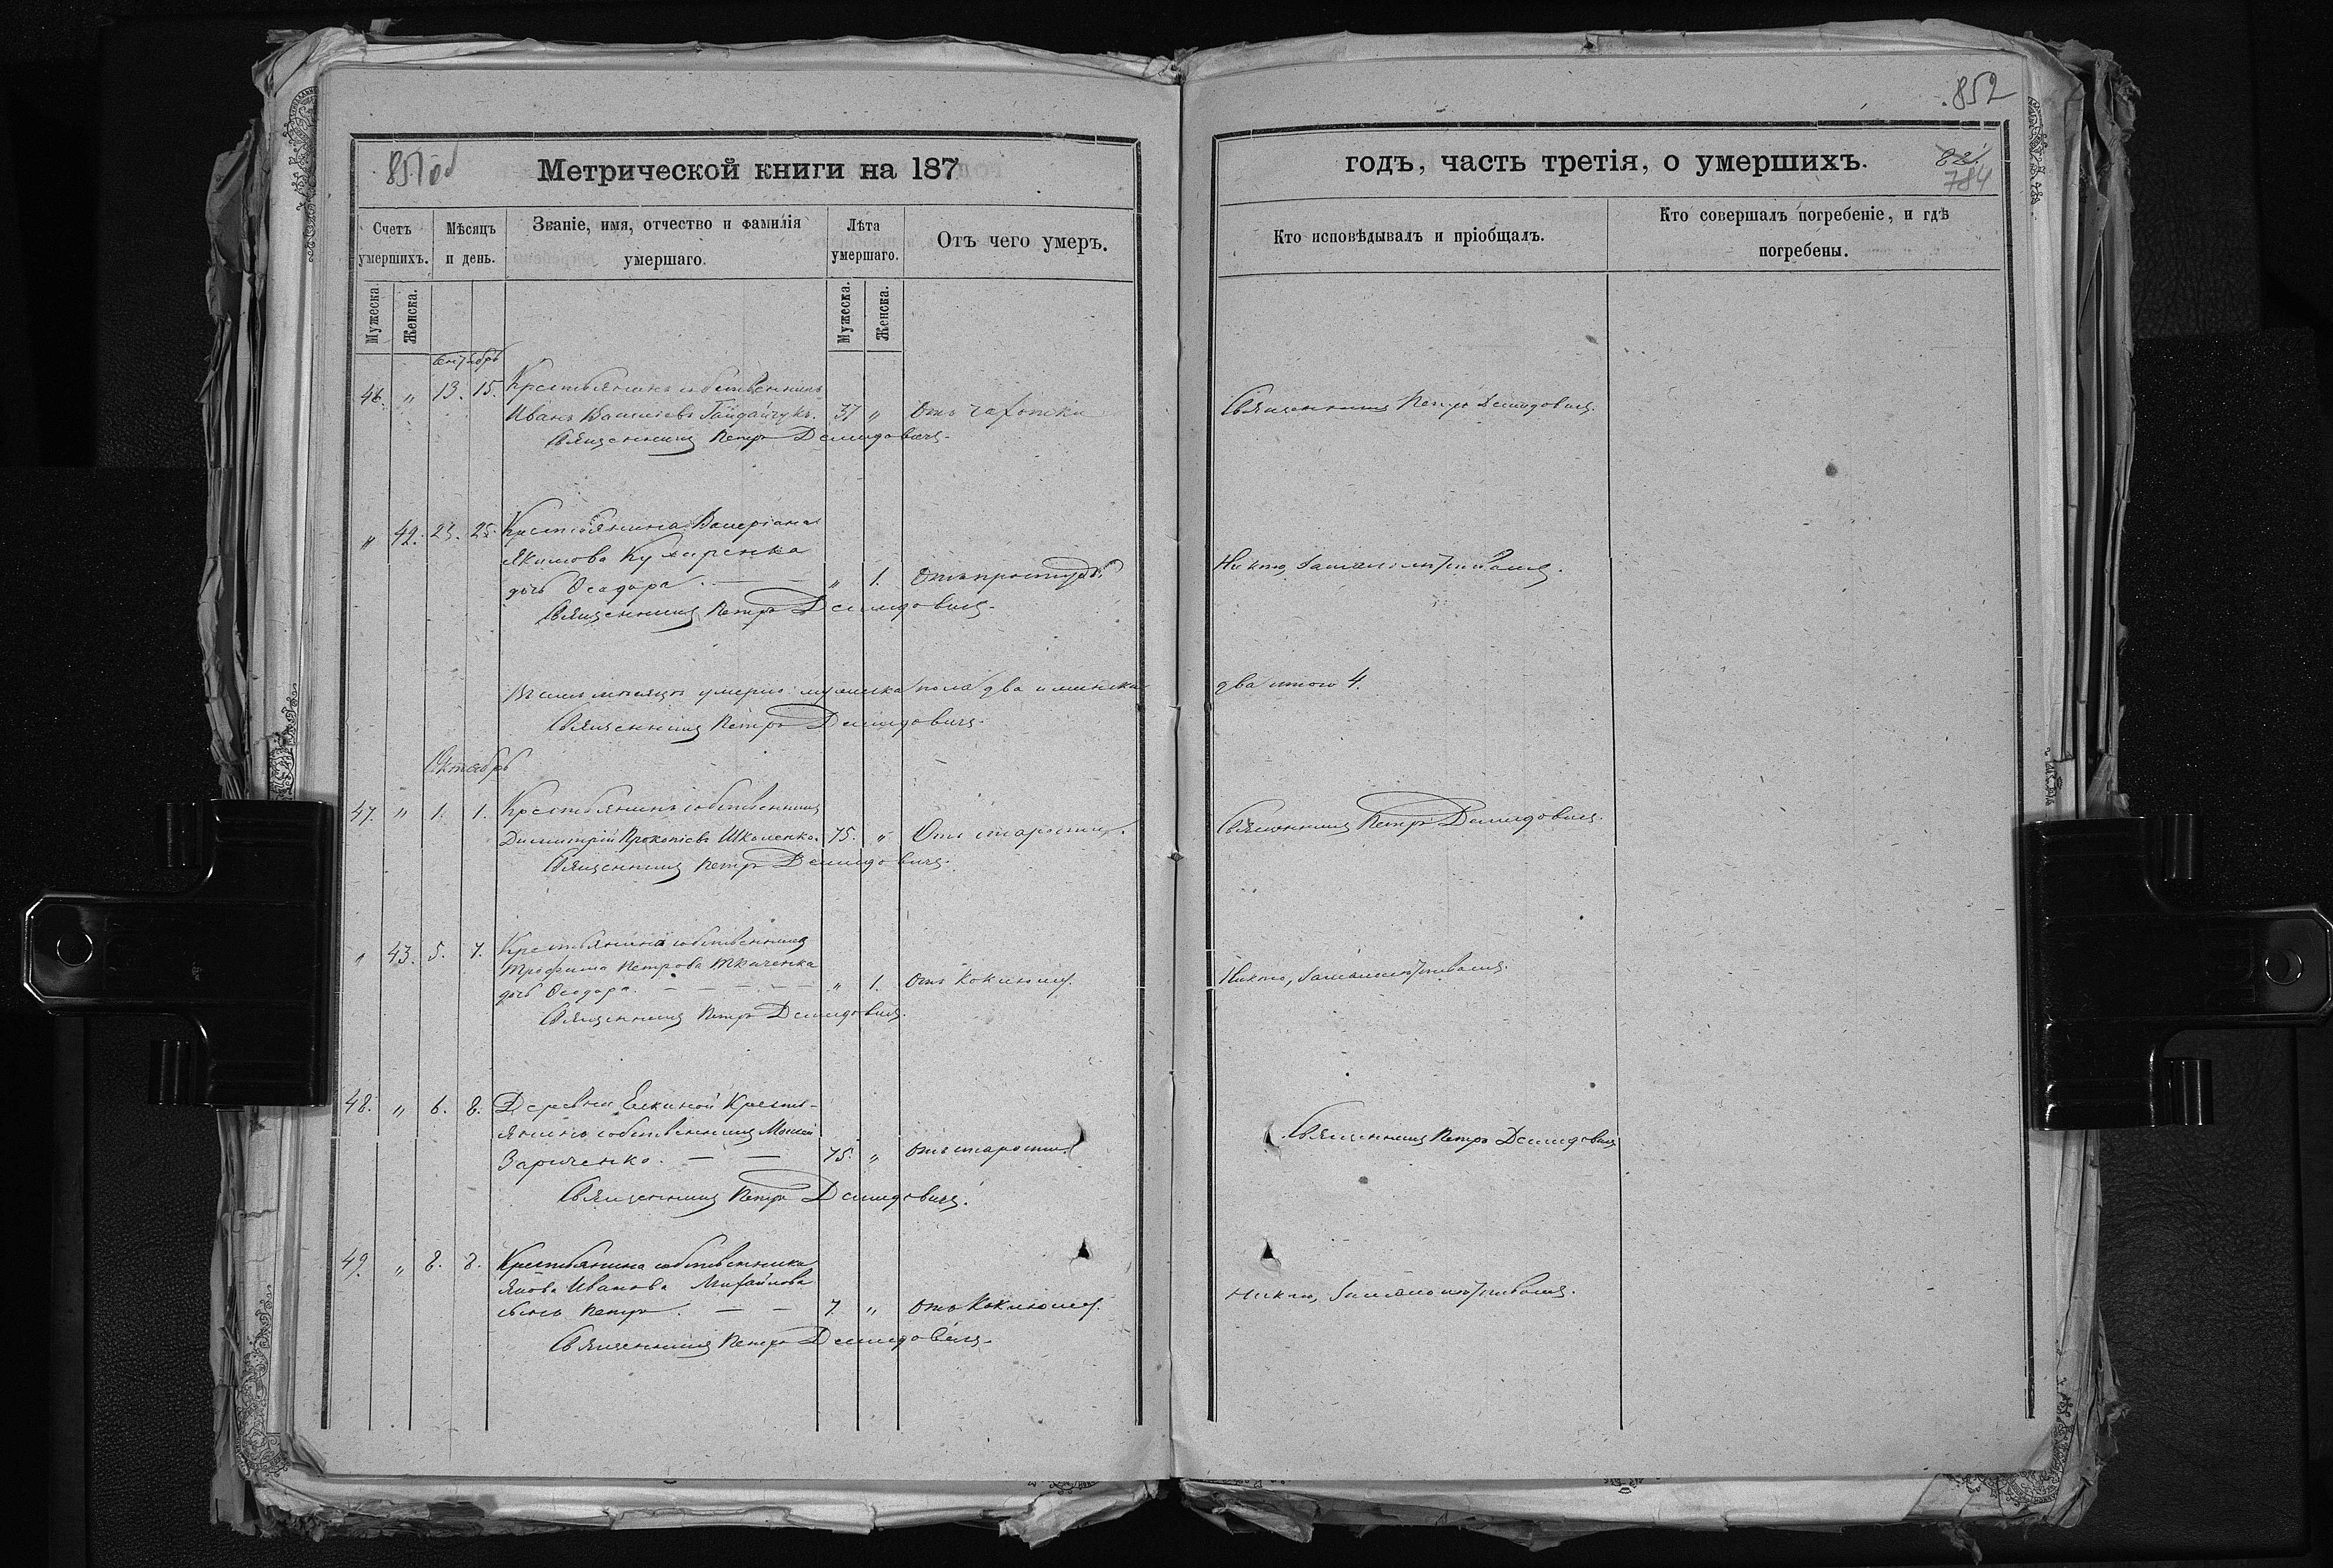 851 об
Метрической книги на 187
Счетъ умершихъ.
Мѣсяцъ и день.
Званіе, имя, отчество и фамилія умершаго.
Лѣта умершаго.
Отъ чего умеръ.
Мужеска.
Женска.
Мужеска.
Женска.
Сентябрь
46. " 13. 15. Крестьянинъ собственникъ
Иванъ Василіевъ Гайдайчукъ. 37 " Отъ чахотки
Священникъ Петръ Демидовичъ.
" 42. 23. 25. Крестьянина Валеріана
Якимова Кухаренка
дочь Ѳеодора. — — " 1. Отъ простуды.
Священникъ Петръ Демидовичъ.
Въ семъ мѣсяцѣ умерло мужеска пола два и женска
Священникъ Петръ Демидовичъ.
Октябрь
47. " 1. 1. Крестьянинъ собственникъ
Димитрій Прокопіевъ Шкаленко. 75. " Отъ старости.
Священникъ Петръ Демидовичъ.
" 43. 5. 7. Крестьянина собственника
Трофима Петрова Ткаченка
дочь Ѳеодора. — — — — " 1. Отъ коклюша.
Священникъ Петръ Демидовичъ.
48. " 6. 8. Деревни Крестъ-
янинъ собственникъ
— — 75. " Отъ старости.
Священникъ Петръ Демидовичъ.
49. " 8. 8. Крестьянина собственника
Якова Иванова Михайлова
сынъ Петръ. — — 7. " Отъ коклюша.
Священникъ Петръ Демидовичъ.
852
годъ, часть третія, о умершихъ.
784
Кто исповѣдывалъ и пріобщалъ.
Кто совершалъ погребеніе, и гдѣ погребены.
Священникъ Петръ Демидовичъ.
Никто, за
два итого 4.
Священникъ Петръ Демидовичъ.
Никто, за
Священникъ Петръ Демидовичъ
Никто, за